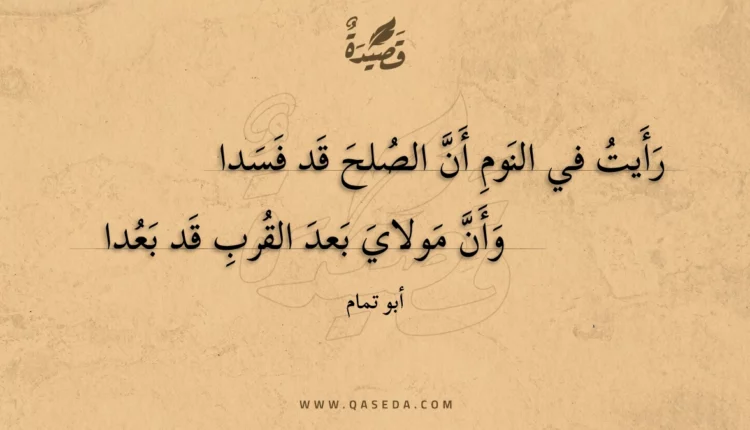 قَصِيْدَةٌ
رَأَيتُ في النَومِ أَنَّ الصُلحَ قَد فَسَدا
وَأَنَّ مَولايَ بَعدَ القُربِ قَد بَعُدا
أبو تمام
WWW.QASEDA.COM